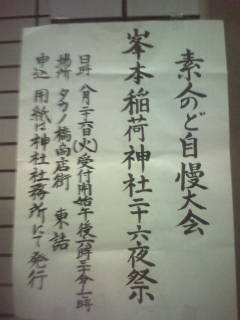 素人のど自慢大会
峯本稲荷神社二十六夜祭
日時 八月二十六日(火)受付開始午後六時三十分〜七時
場所 タカノ橋商店街 東詰
申込 用紙は神社社務所にて発行